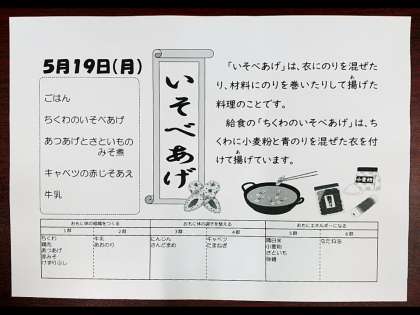 5月19日(月)
ごはん
ちくわのいそべあげ
あつあげとさといもの
みそ煮
キャベツの赤じそあえ
牛乳
いそべあげ
「いそべあげ」は、衣にのりを混ぜた
り、材料にのりを巻いたりして揚げた
料理のことです。
給食の「ちくわのいそべあげ」は、ち
くわに小麦粉と青のりを混ぜた衣を付
けて揚げています。
小麦粉
おもに体の組織をつくる おもに体の調子を整える おもにエネルギーになる
1群 2群 3群 4群 5群 6群
ちくわ 牛乳 にんじん キャベツ 精白米 なたね油
鶏肉 あおのり さんどまめ たまねぎ 小麦粉
あつあげ さといも
赤みそ 砂糖
けずりぶし